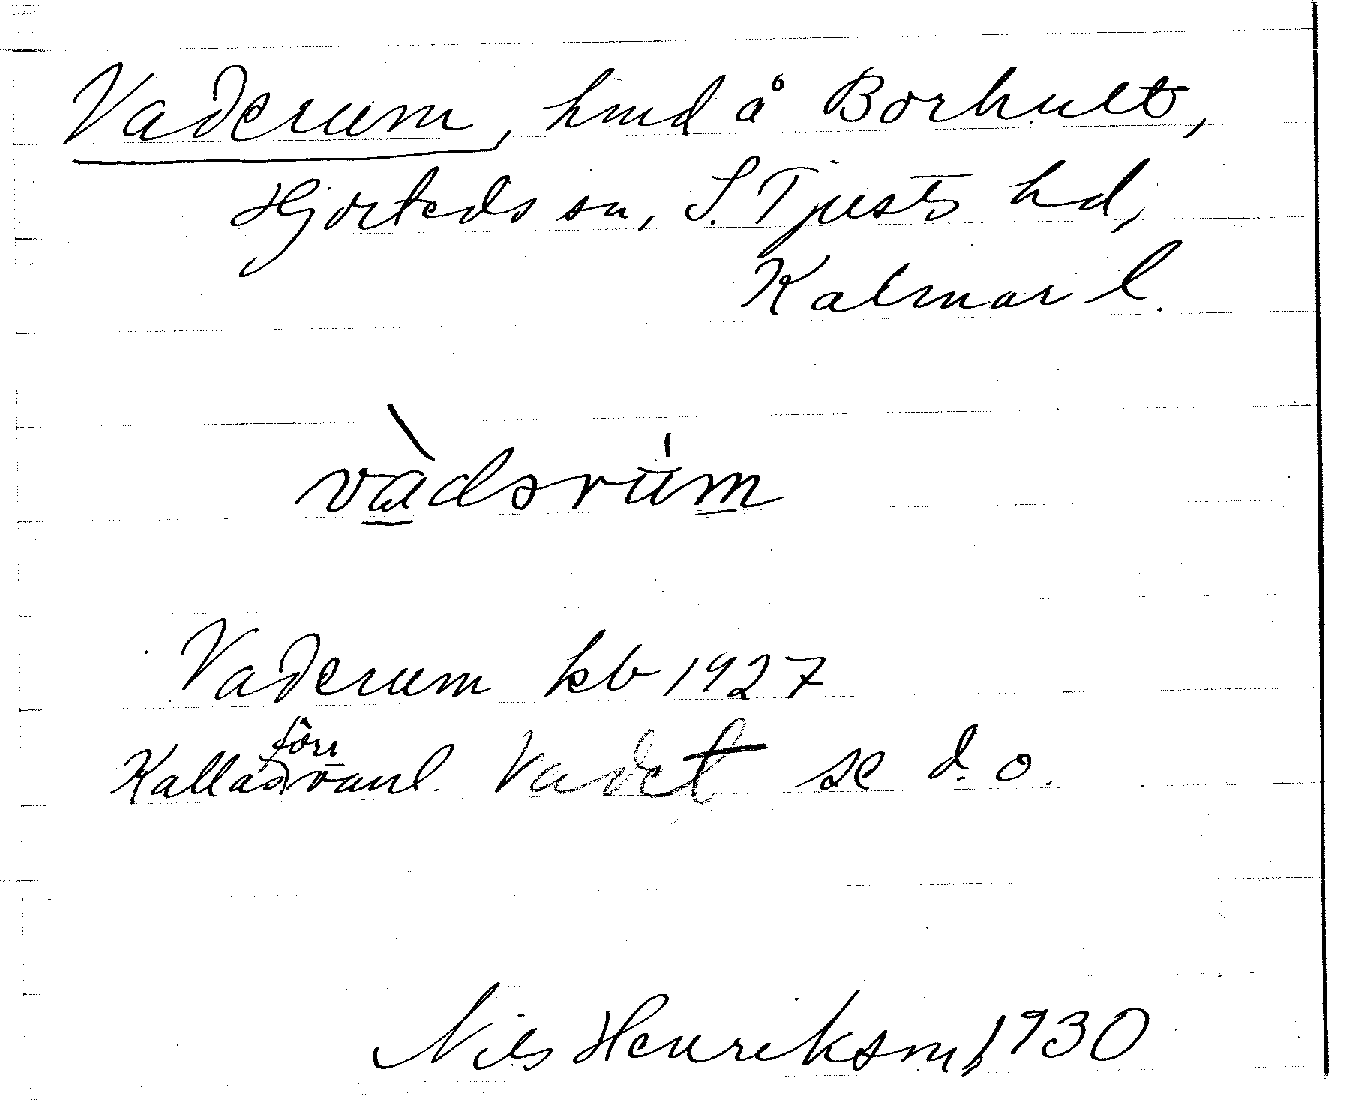 Vaderum, hmd å Borhult,
Hjorteds sn, S. Tjusts hd,
Kalmar l.
vàdərúm
Vaderum kb 1927
Kallas förr vanl. Vadet se d. o.
Nils Henriksson 1930